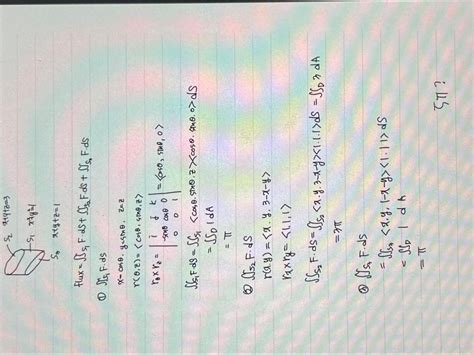 S₂ x+y+z=3
S₁ x²+y²=1
S₃ x+y+z=1
flux = ∬S₁ F·dS + ∬S₂ F·dS + ∬S₃ F·dS
① ∬S₁ F·dS
x=cosθ, y=sinθ, z=z
r(θ,z) = <cosθ, sinθ, z>
rθ×rz = | i j k | = <cosθ, sinθ, 0>
-sinθ cosθ 0
0 0 1
∬S₁ F·dS = ∬S₁ <cosθ, sinθ, z><cosθ, sinθ, 0> dS
= ∬D 1 dA
= π
② ∬S₂ F·dS
r(x,y) = <x, y, 3-x-y>
rx×ry = <1,1,1>
∬S₂ F·dS = ∬S₂ <x, y, 3-x-y><1,1,1> dS = ∬D 3 dA
= 3π
③ ∬S₃ F·dS
= ∬S₃ <x, y, 1-x-y><1,1,1> dS
= ∬D 1 dA
= π
5π?